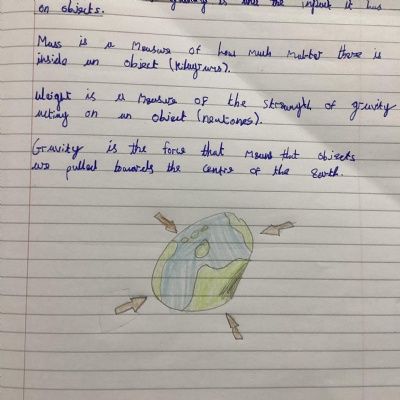 gravity is and the impact it has
on objects.
Mass is a measure of how much matter there is
inside an object (kilograms).
Weight is a measure of the strength of gravity
acting on an object (newtones).
Gravity is the force that means that objects
are pulled towards the centre of the Earth.